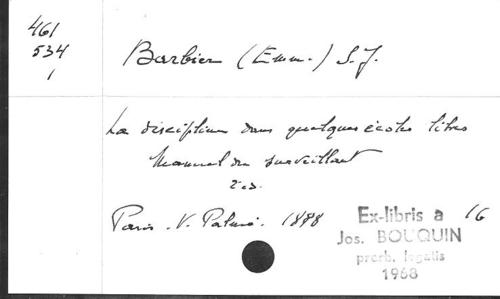 461
534
1
Barbier (Emm.) S.J.
La discipline dans quelques écoles libres
Manuel du surveillant
2 éd.
Paris. V. Palmé. 1888
16
Ex-libris a
Jos. BOUQUIN
presb. legatis
1968